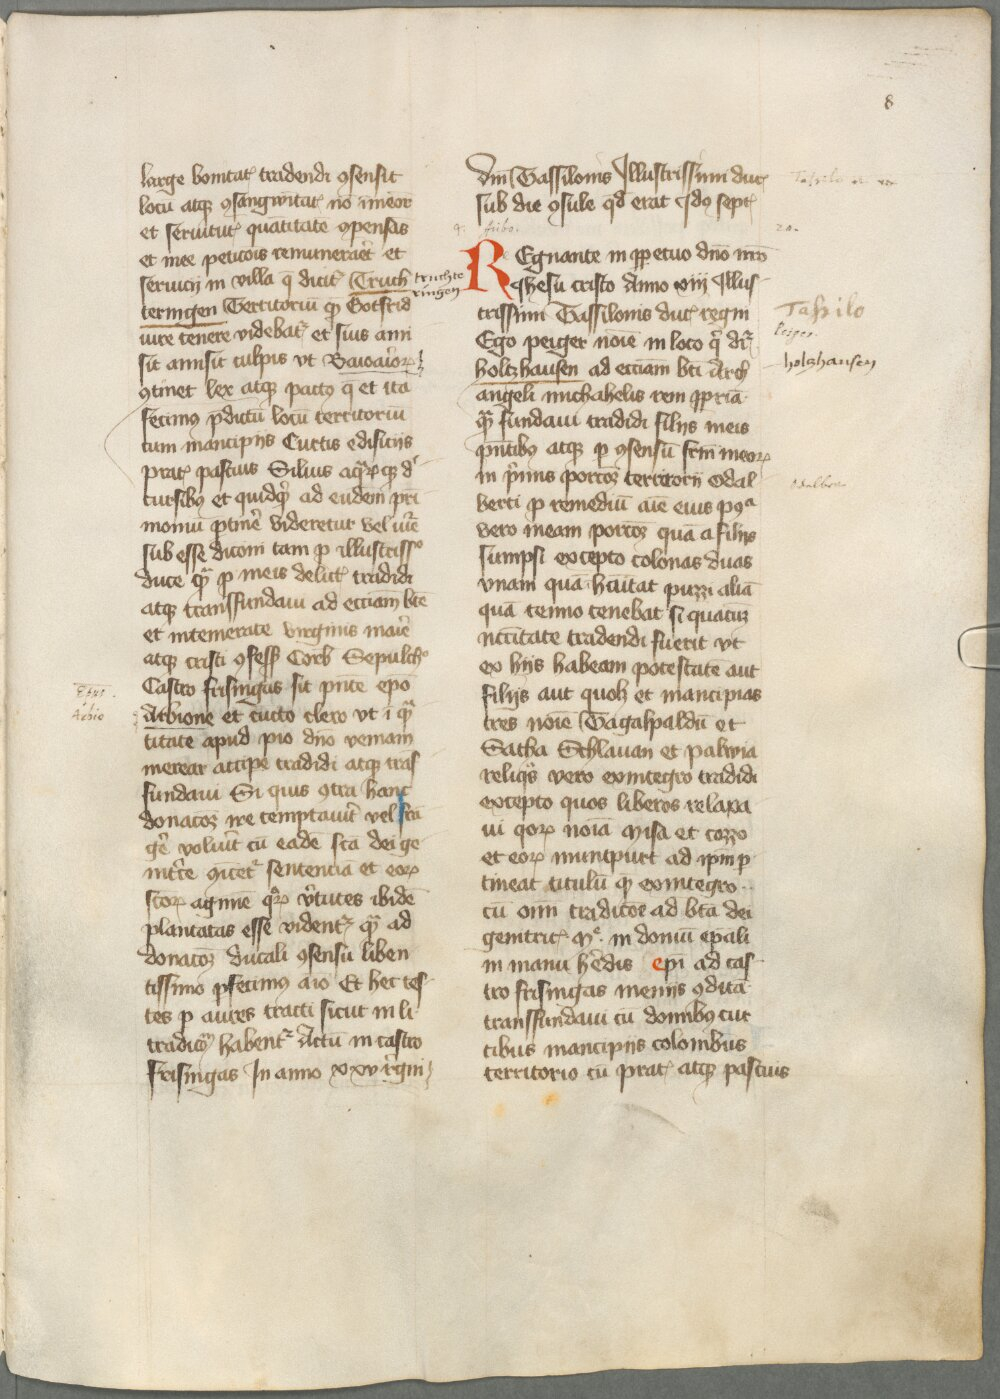 8
large bonitat᷒ tradendi ꝯsensit
locū atqꝫ ꝯsangwītat᷒ nō īmeor
et seruitut᷒ quātitatē ꝯpensās
et mee peticōis remuneraēt et
seruicij in villa q̄ dicit᷒ Truch
teringen Territoriū qꝫ Gotfrid
iure tenere videbat᷒ et suis ani
sit amisit culpis vt Baioario⁊
ꝯtinet lex atqꝫ pactꝰ q̄ et ita
fecimꝰ p̄dictū locū territoriū
cum mancipijs Curtis edificijs
prat᷒ pascuis Siluis aqr⁊qꝫ d᷒
cursibꝰ et quidqͥd ad eudem pri
moniū ptinē videretur vel iur̄e
sub esse diconi tam ꝑ illustriss⁰
duce qͣ ꝑ meis delict᷒ tradidi
atqꝫ transfundaui ad eccīam bte
et intemerate virginis marie
atqꝫ cristi ꝯfess Corb Sepulchᵒ
Castro frisingas sit pn̄te ep̄o
Arbione et cūcto clero vt i qͣ
titate apud pio dn̄o veniam
merear accipe tradidi atqꝫ trās
fundaui Si quis ꝯtra hanc
donacōꝫ ire temptauit vel frā
gē volūit cū eadē scā dei ge
nitce ꝯicet sentenciā et eor⁊
scōr⁊ agmīe qͦr⁊ v̄tutes ibidē
plantatas esse vident᷒ qͣ ad
donacōꝫ ducali ꝯsensu liben
tissimo pfecimꝰ aīo Et hec tes
tes ꝑ aures tracti sicut in li
tradicōꝫ habent᷒ Actū in castro
Frisingas In anno xxvi regni
truchte
ringen
Ep̄us.
Arbio
Dm̄ Tassilonis Illustrissimi duc᷒
sub die ꝯsule qd erat idꝰ sept᷒
REgnante in ppetuo dn̄o nr̄o
Jhesu cristo Anno xiiij Illus
trissimi Tassilonis duc᷒ regni
Ego peiger noīe in loco q̄ dr᷒
holtzhausen ad eccīam bt̄i Arch
angeli michahelis rem ppriā
qͣ fundaui tradidi filijs meis
pn̄tibꝰ atqꝫ ꝑ ꝯsensū frm̄ meor⁊
in p̄mis porcōꝫ territorij Odal
berti ꝑ remediū aīe eius pꝰᵃ
vero meam porcōꝫ quā a filijs
sumpsi excepto colonas duas
vnam quā hītat puzzi aliā
quā tenno tenebat si quatuꝫ
nccitate tradendi fuerit vt
ex hijs habeam potestatē aut
filijs aut quolꝫ et mancipias
tres noīe Gagahpaldū et
Satha Schlauan et palwia
reliqͦs vero exintegro tradidi
excepto quos liberos relaxa
ui qor⁊ noīa Misa et cozzo
et eor⁊ muntpurt ad ipm̄ ꝑ
tineat titulū qꝫ exintegro
cū om̄i tradicōe ad btā dei
genitric᷒ Mᵉ. in domū ep̄ali
in manu h̄edis epī ad cas
tro frisingas menijs ꝯditā
transfundaui cū domibꝰ cūc
tibus mancipijs colonibus
territorio cū prat᷒ atqꝫ pascuis
20.
Taßilo
Peiger
holzhausen